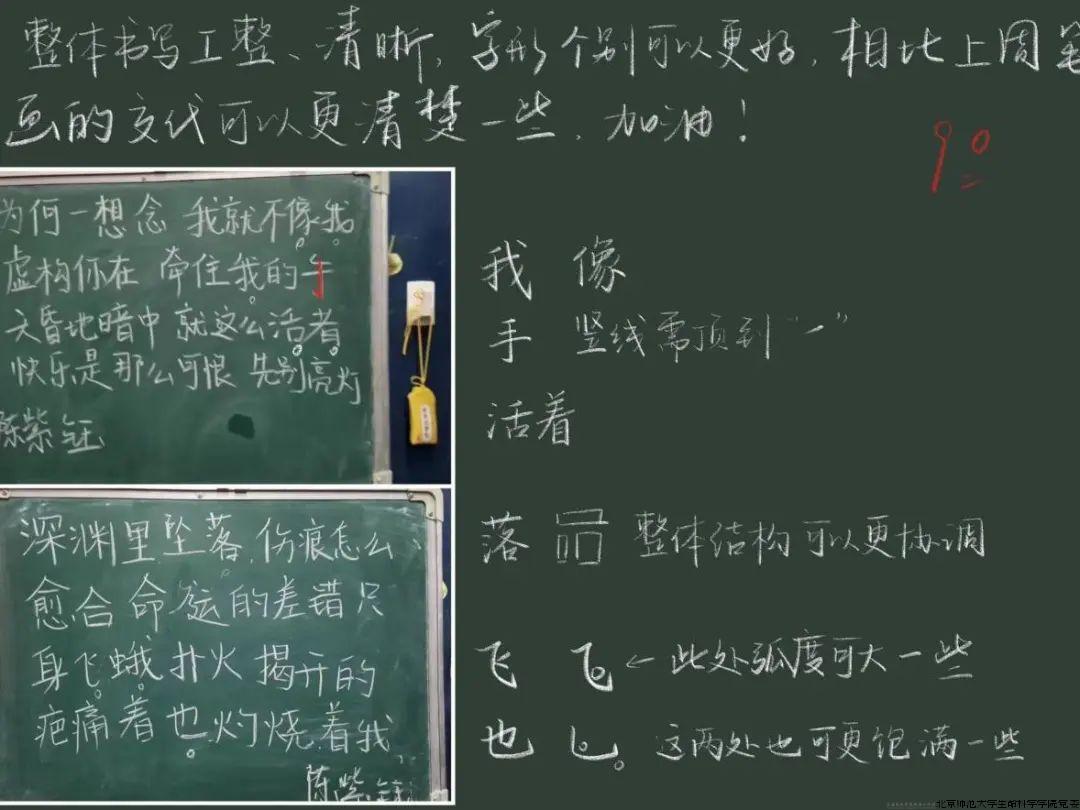 整体书写工整、清晰，字形个别可以更好，相比上周笔
画的交代可以更清楚一些，加油！
90
为何一想念 我就不像我
虚构你在 牵住我的手
天昏地暗中 就这么活着
快乐是那么可恨 先别亮灯
陈紫钰
深渊里坠落 伤痕怎么
愈合命运的差错只
身飞蛾扑火 揭开的
疤痛着也灼烧着我
陈紫钰
我 像
手 竖线需顶到“㇀”
活着
落 整体结构可以更协调
飞 ⺄←此处弧度可大一些
也 乚 这两处也可更饱满一些
北京师范大学生命科学学院党委